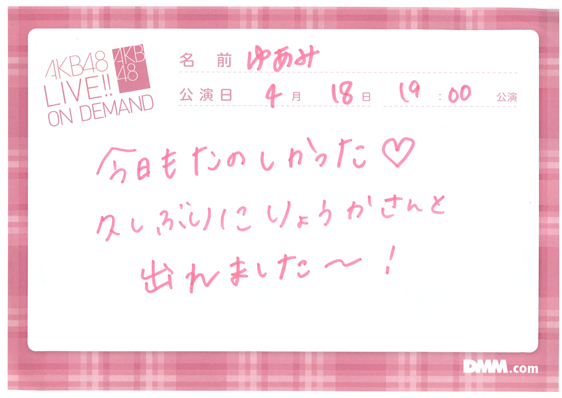 AKB48
LIVE!!
ON DEMAND
AKB
48
名前 ゆあみ
公演日 4月 18日 19:00 公演
今日もたのしかった♡
久しぶりにりょうかさんと
出れました〜!
DMM.com